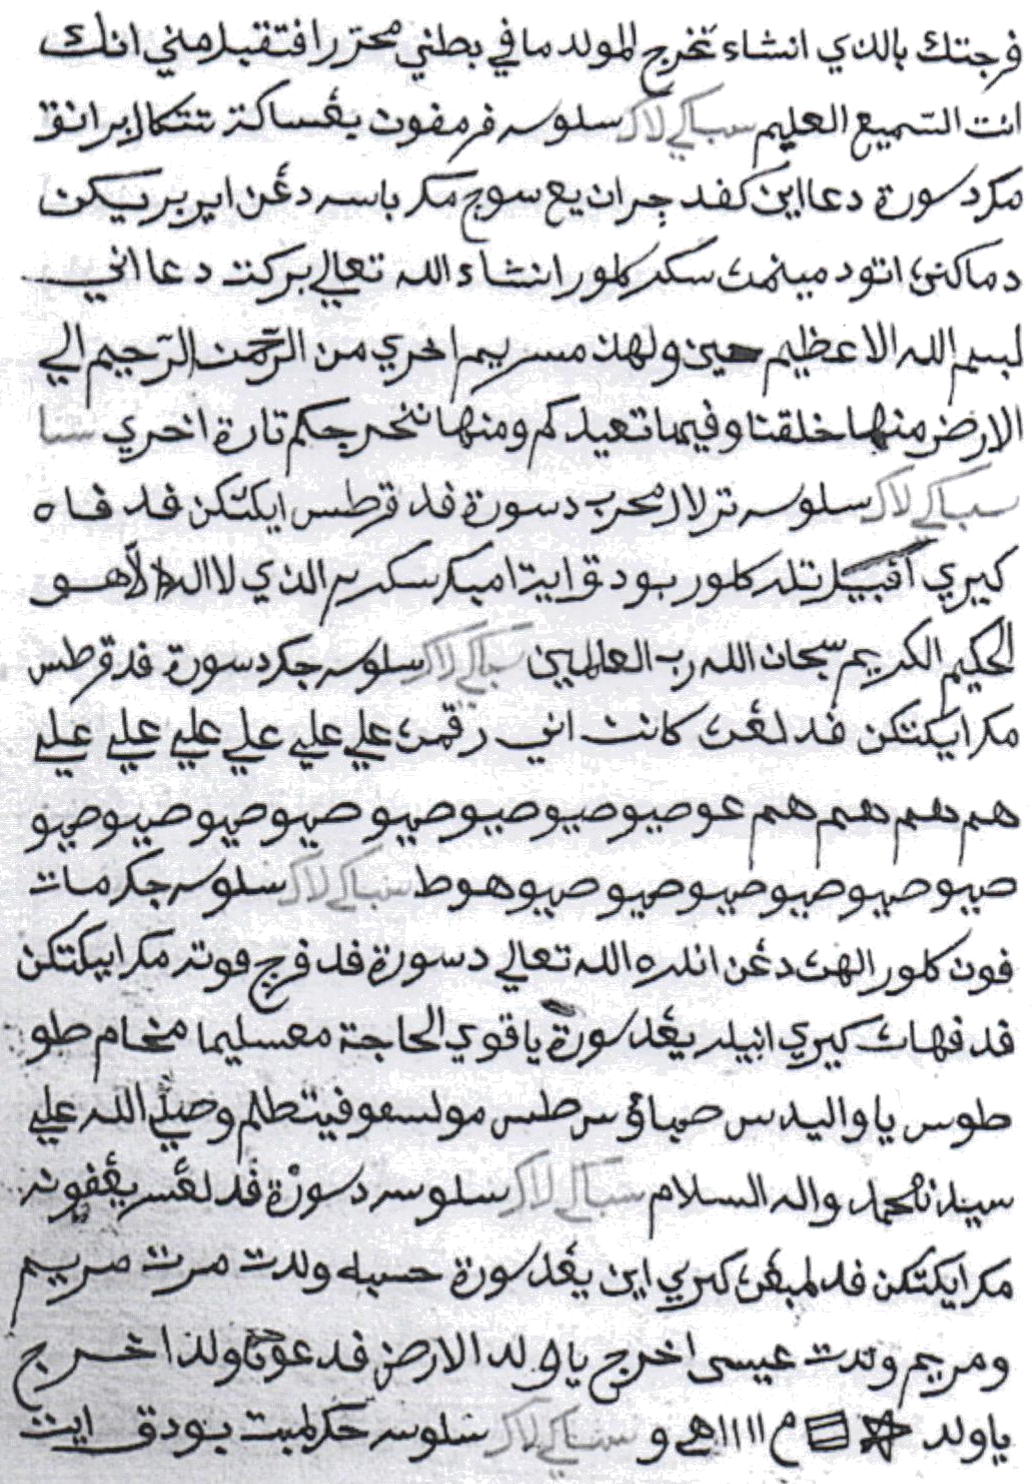 فرجتك بالذي انشاء تخرج المولد ما في بطني محرّرا فتقبل مني انك
انت السّميع العليم سباݢي لاݢ سلوسه فرمفون يڠ ساكة تتكال برانق
مك د سورة دعا اين كفد جران يڠ سوج مك باسه دڠن اير بريكن
دماكنڽ اتو د مينمڽ سكر كلور انشاء الله تعالي بركت دعا اني
لبسم الله الاعظيم حين ولهذ مسريم اخري من الرّحمن الرّحيم الي
الارض منها خلقنا وفيها تعيدكم ومنها نخرجكم تارة اخري
سباݢي لاݢ سلوسه ترلال محرب د سورة فد قرطس ايكتكن فد فاه
كيري افبيل تله كلور بودق ايت امبل سكره الذي لا اله الّا هو
الحكيم الكريم سبحان الله رب العالمين سباݢي لاݢ سلوسه جك د سورة فد قرطس
مك ايكتكن فد لڠنڽ كانن اني رقمڽ علي علي علي علي علي علي
هم هم هم هم عو صيو صيو صيو صيو صيو صيو صيو صيو
صيو صيو صيو صيو صيو صيو هوط سباݢي لاݢ سلوسه جك مات
فون كلور الهڽ دڠن انله الله تعالي د سورة فد فرج فوته مك ايكتكن
فد فهاڽ كيري انيله يڠد سورة يا قوي الحاجة معسليما مخام طو
طوس يا واليدس صباؤ س طس مولسعو فيتطلم وصلّي الله علي
سيدنا محمد واله السلام سباݢي لاݢ سلوسه د سورة فد لڠس يڠفوته
مك ايكتكن فد لمبڠڽ كيري اين يڠد سورة حسبه ولدت مرت مريم
ومريم ولدت عيسى اخرج يا ولد الارض فدعوتا ولذا خرج
يا ولد م ااااا هي و سباݢي لاݢ سلوسه جك لمبت بودق ايت